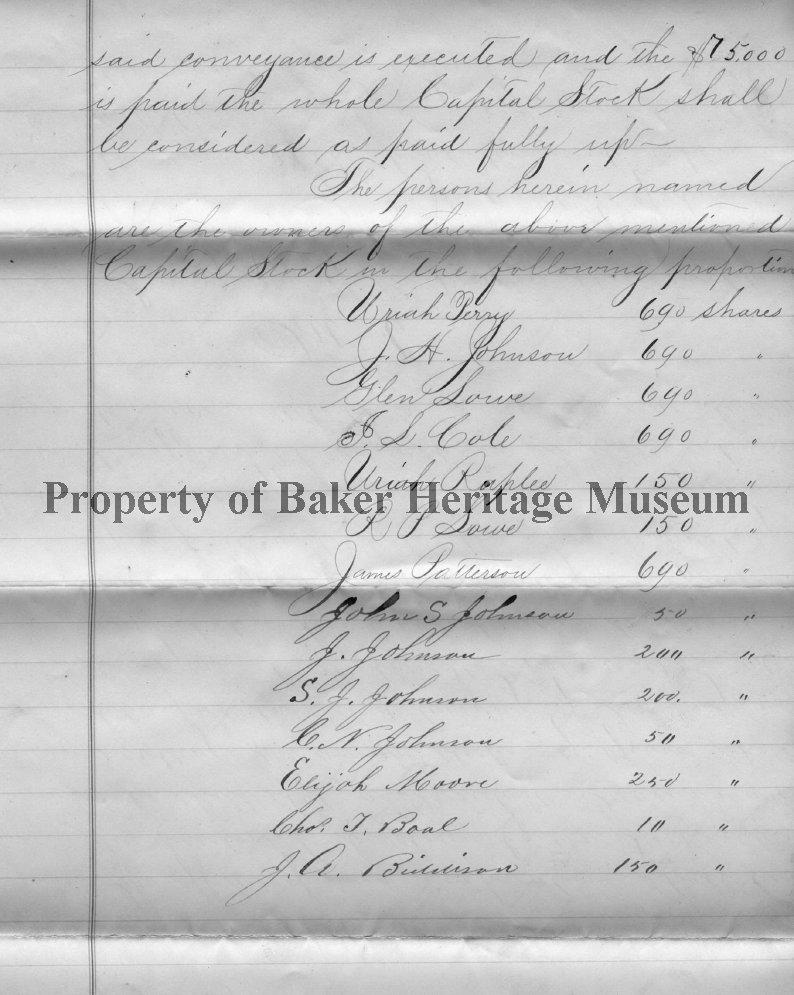 said conveyance is executed and the $75,000
is paid the whole Capital Stock shall
be considered as paid fully up—
The persons herein named
are the owners of the above mentioned
Capital Stock in the following proportion
Uriah Perry 690 shares
J. H. Johnson 690 "
Glen Lowe 690 "
J. L. Cole 690 "
Uriah Raplee 150 "
Property of Baker Heritage Museum
R J Lowe 150 "
James Patterson 690 "
John S Johnson 50 "
J. Johnson 200 "
S. J. Johnson 200. "
C. N. Johnson 50 "
Elijah Moore 250 "
Chas. T. Boal 10 "
J. A. 150 "